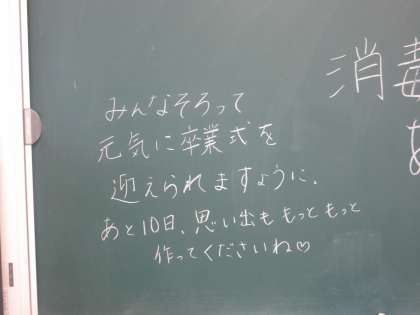 みんなそろって
元気に卒業式を
迎えられますように、
あと10日、思い出も もっと もっと
作ってくださいね♡
消毒